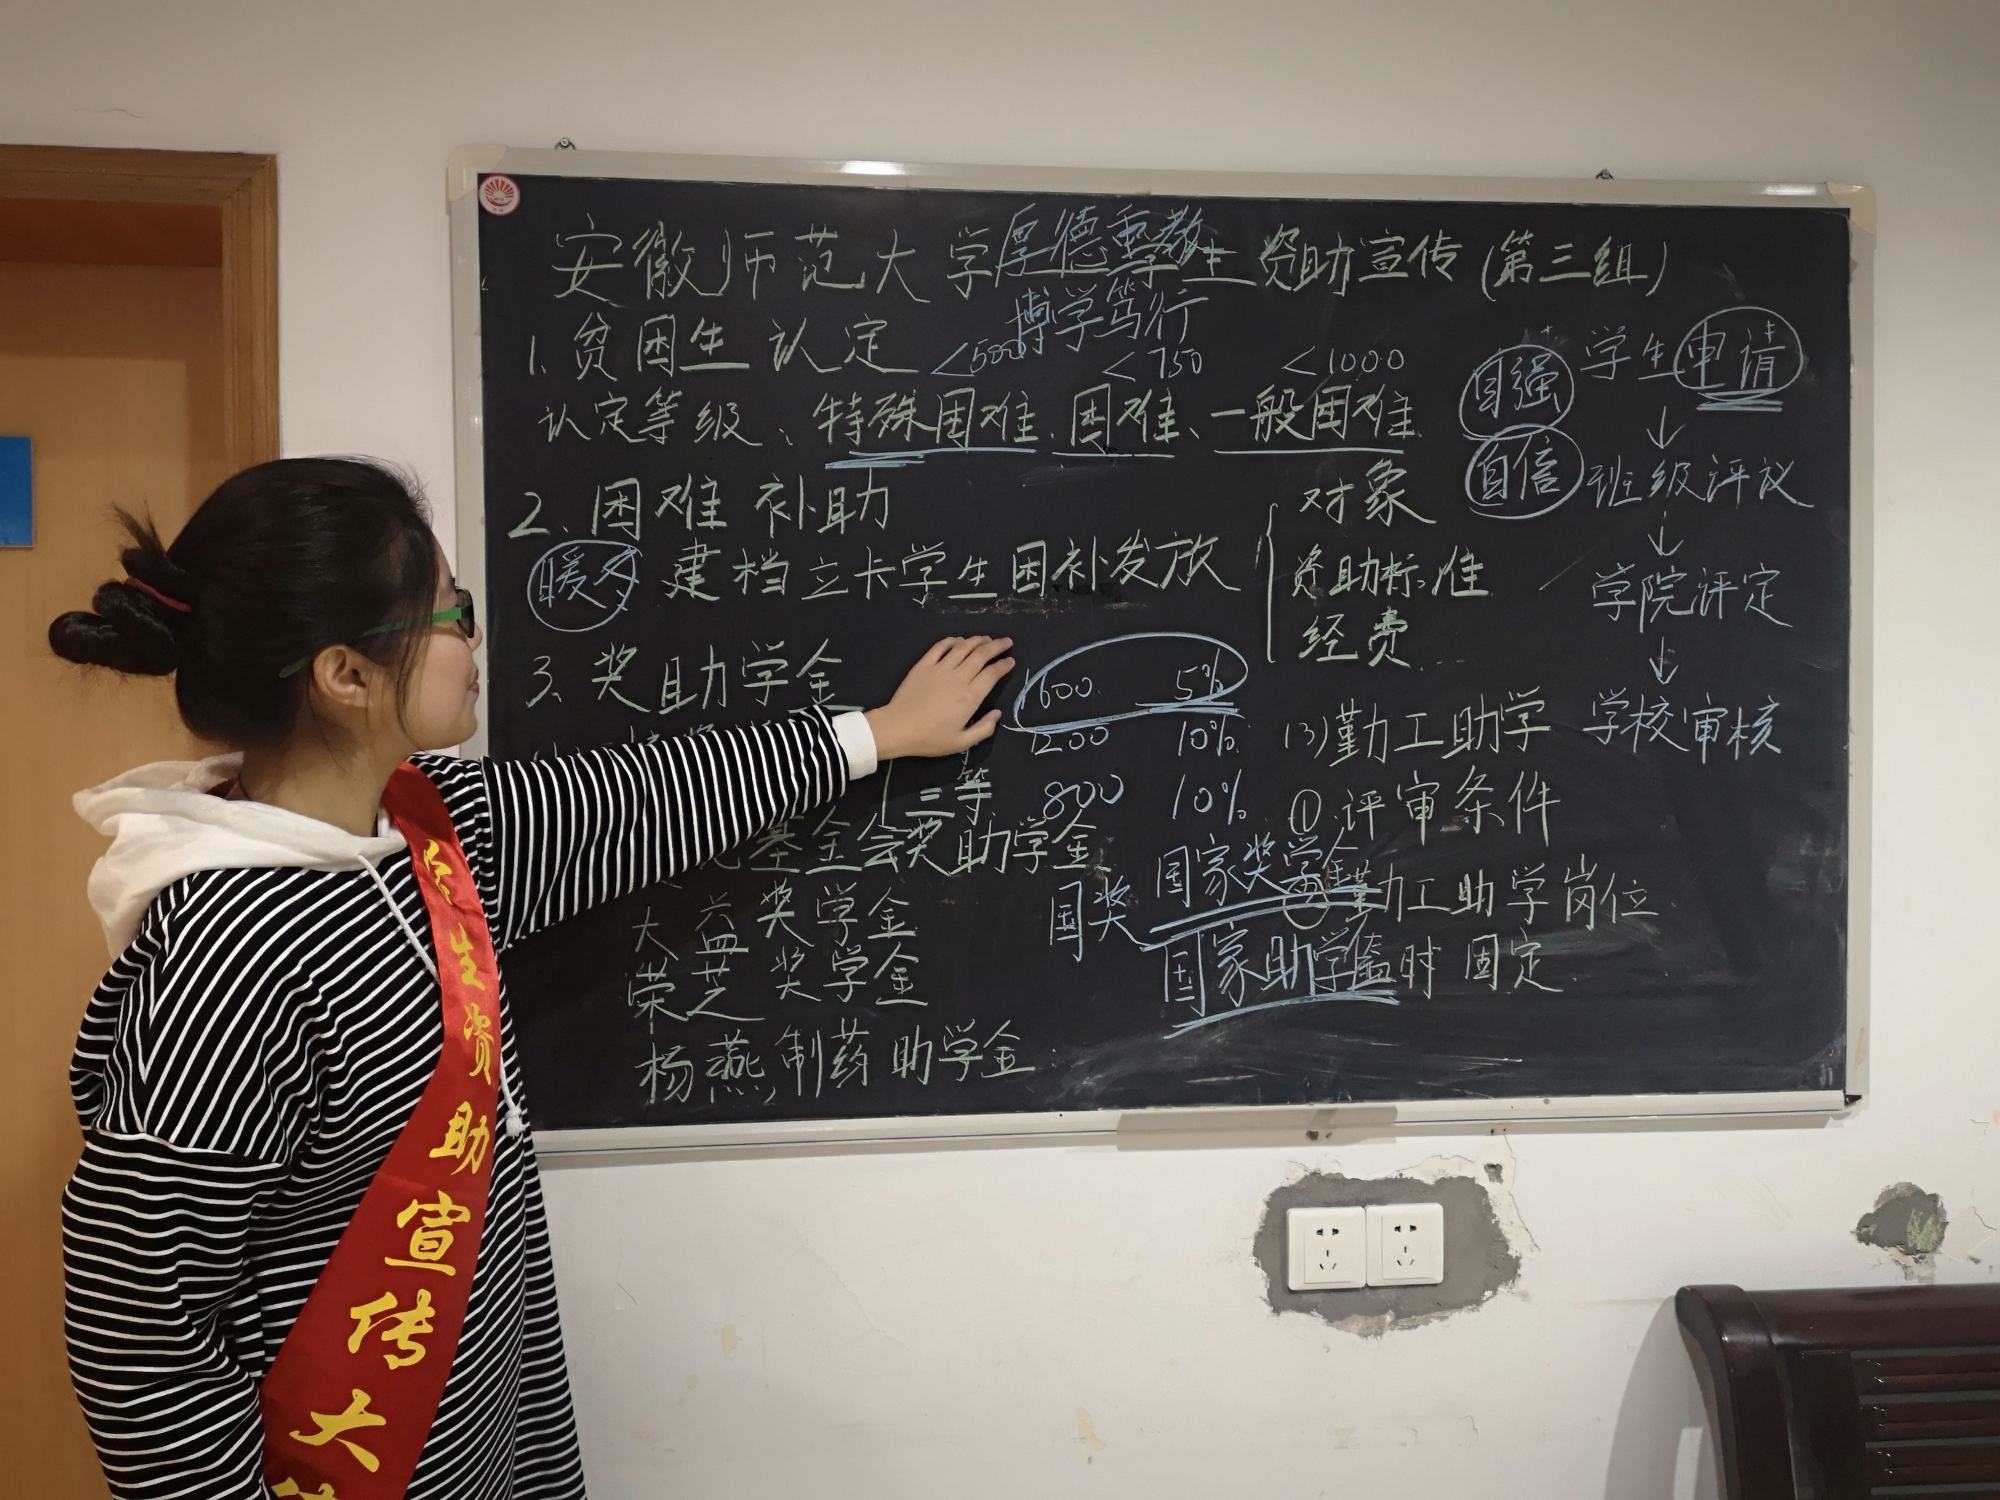 安徽师范大学学生资助宣传(第三组)
厚德重教
博学笃行
1.贫困生认定
<500 <750 <1000
认定等级、特殊困难、困难、一般困难
2.困难补助
暖冬 建档立卡学生困补发放
对象
资助标准
经费...
3.奖助学金
1600 5%
1200 10%
三等 800 10%
基金会奖助学金
大益奖学金
荣芝奖学金
杨燕制药助学金
国奖
国家奖学金
国家助学金
自强
自信
学生申请
↓
班级评议
↓
学院评定
↓
学校审核
(3)勤工助学
①评审条件
②勤工助学岗位
时 固定
生资助宣传大